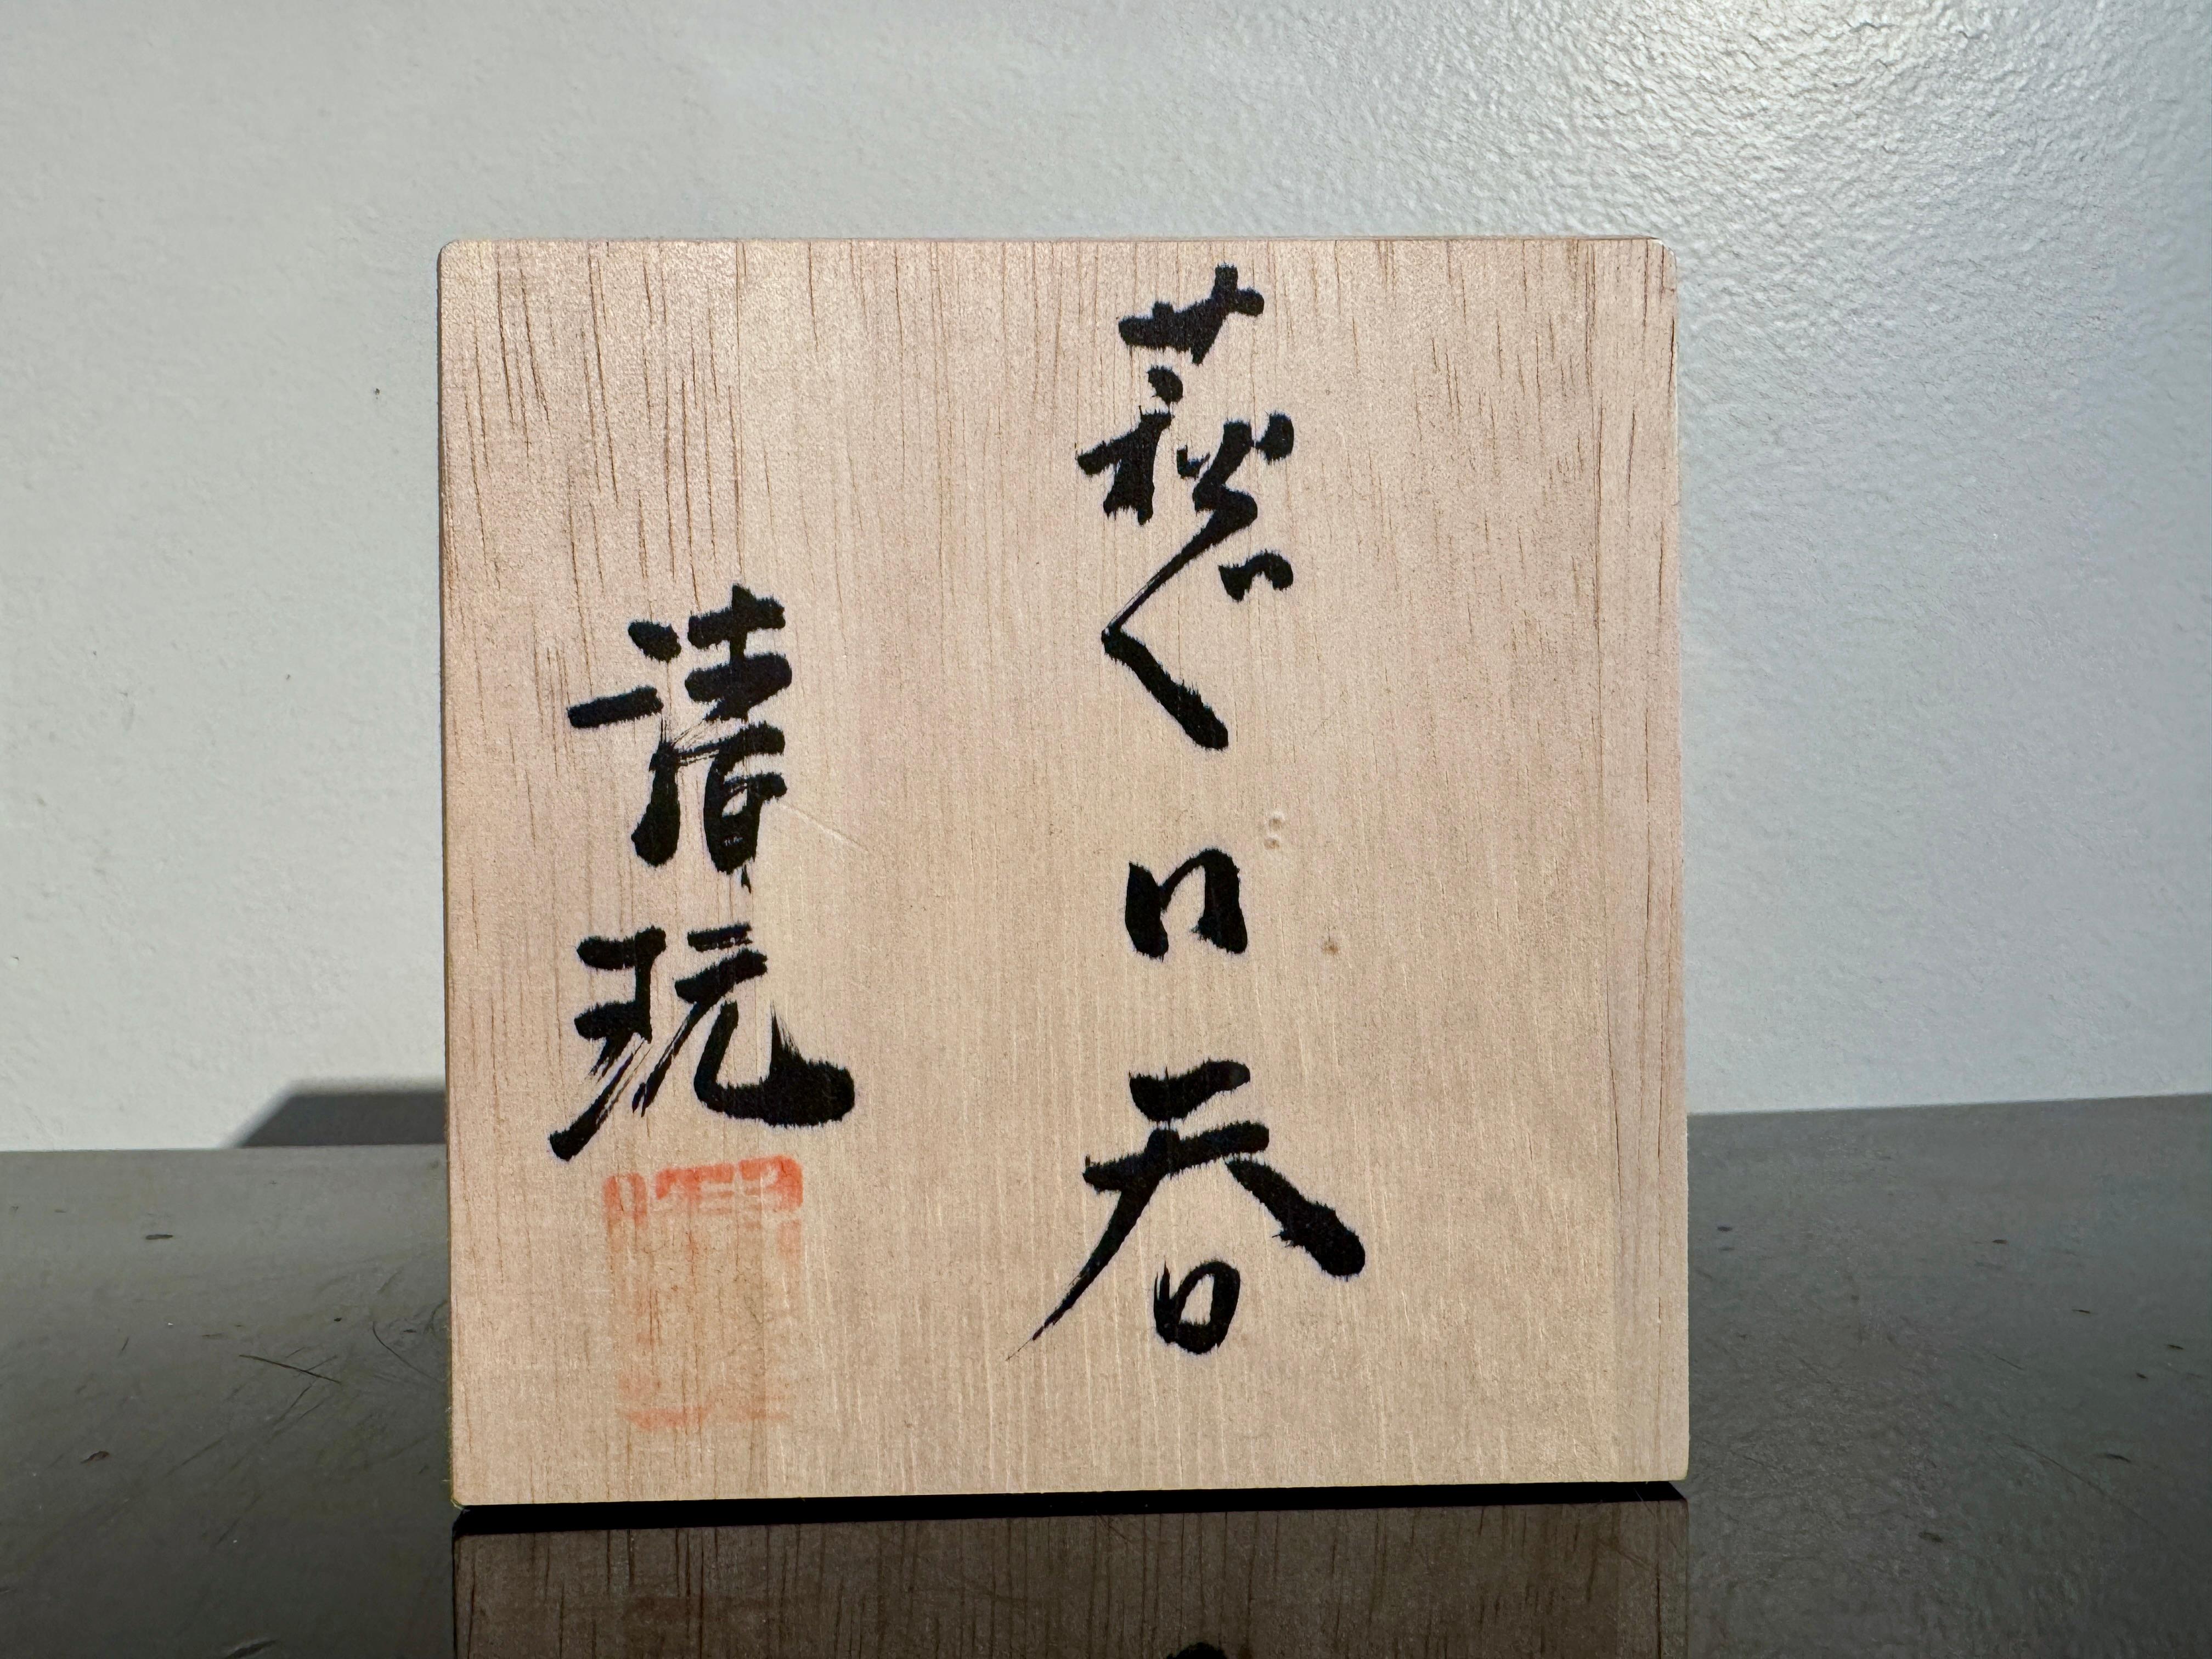 萩ぐい呑
清玩